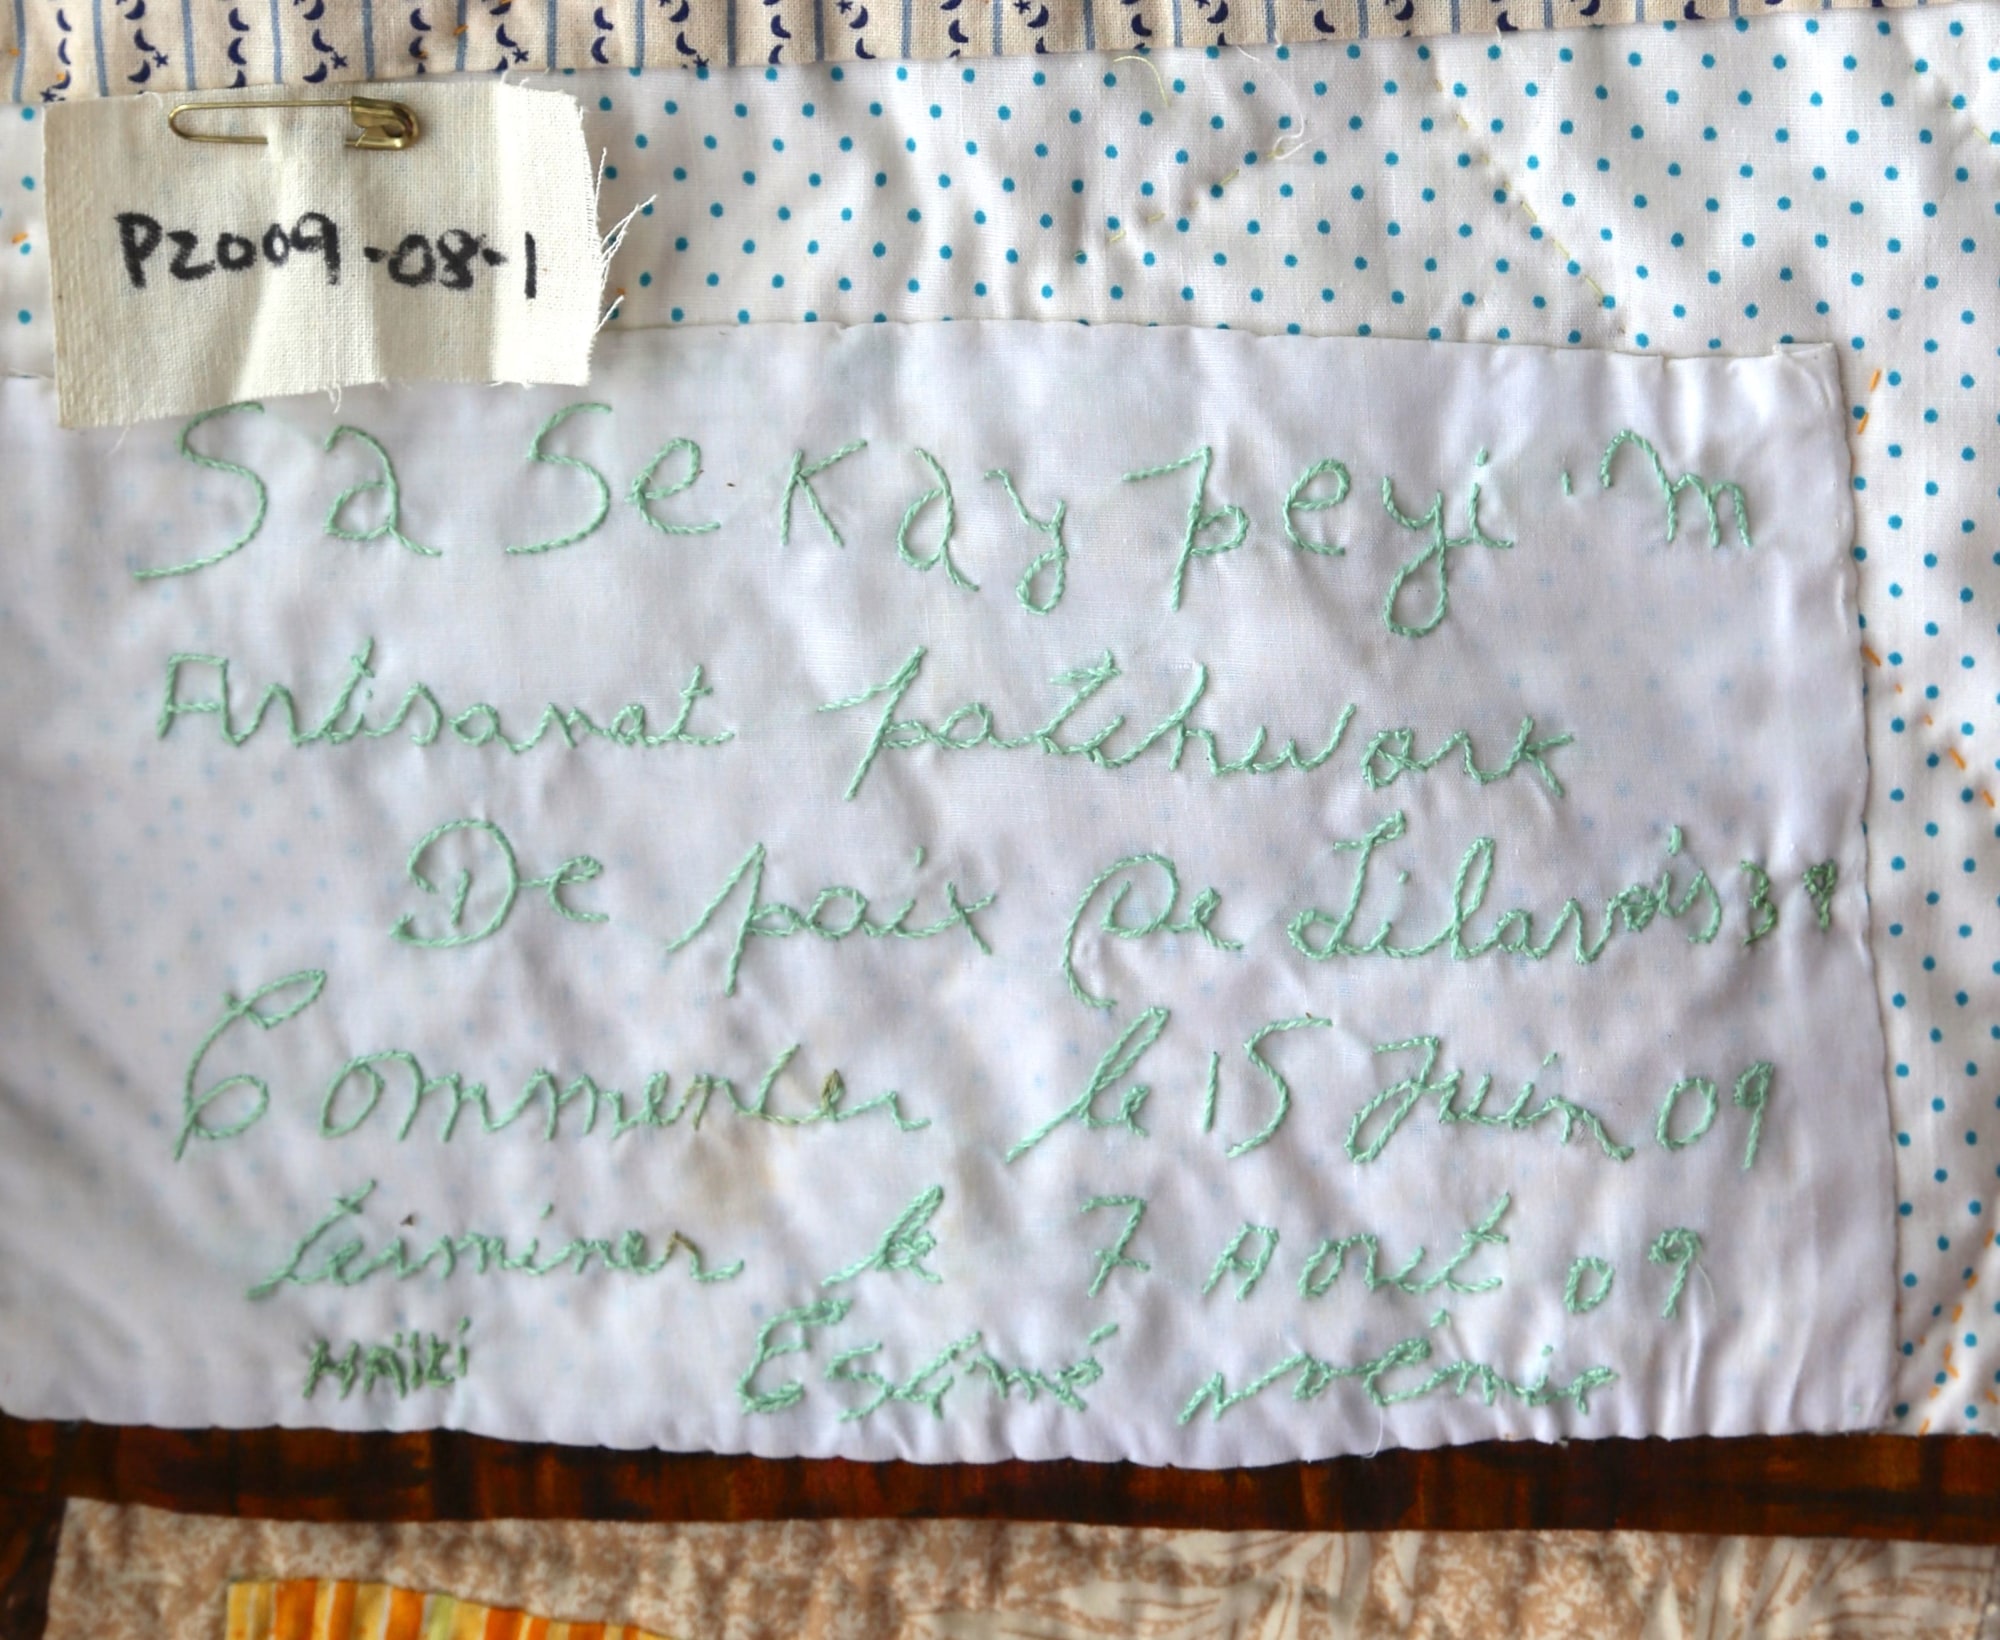 P2009-08-1
Sa Se Kay peyi 'm
Artisanat patchwork
De paix De Lilavois 38
Commencer le 15 Juin 09
teiminer le 7 Aout 09
HAïti